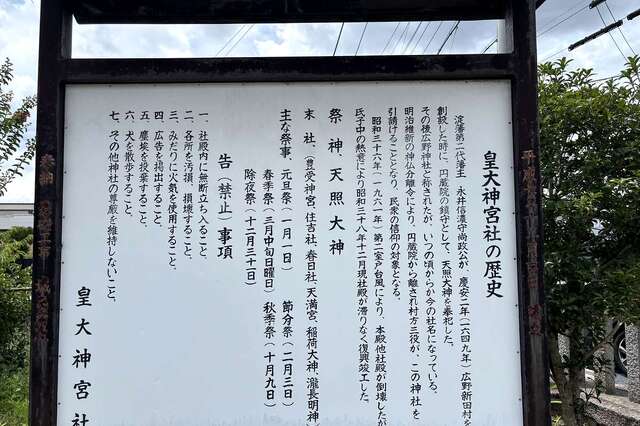 皇大神宮社の歴史
淀藩第二代藩主 永井信濃守尚政公が、慶安二年(一六四九年)広野新田村を
創設した時に、円蔵院の鎮守として、天照大神を奉祀した。
その後広野神社と称されたが、いつの頃からか今の社名になっている。
明治維新の神仏分離令により、円蔵院から離され村方三役が、この神社を
引請けることとなり、民衆の信仰の対象となる。
昭和三十六年(一九六一年)第二室戸台風により、本殿他社殿が倒壊したが
氏子中の熱意により昭和三十八年十二月現社殿が滞りなく復興竣工した。
祭神、天照大神
末社、(豊)受神宮、住吉社、春日社、天満宮、稲荷大神、瀧長明神
主な祭事、元旦祭(一月一日) 節分祭(二月三日)
春季祭(三月中旬日曜日) 秋季祭(十月九日)
除夜祭(十二月三十日)
告(禁止)事項
一、社殿内に無断立ち入ること、
二、各所を汚損、損壊すること、
三、みだりに火気を使用すること、
四、広告を掲出すること、
五、塵埃を投棄すること、
六、犬を散歩すること、
七、その他神社の尊厳を維持しないこと、
皇大神宮社